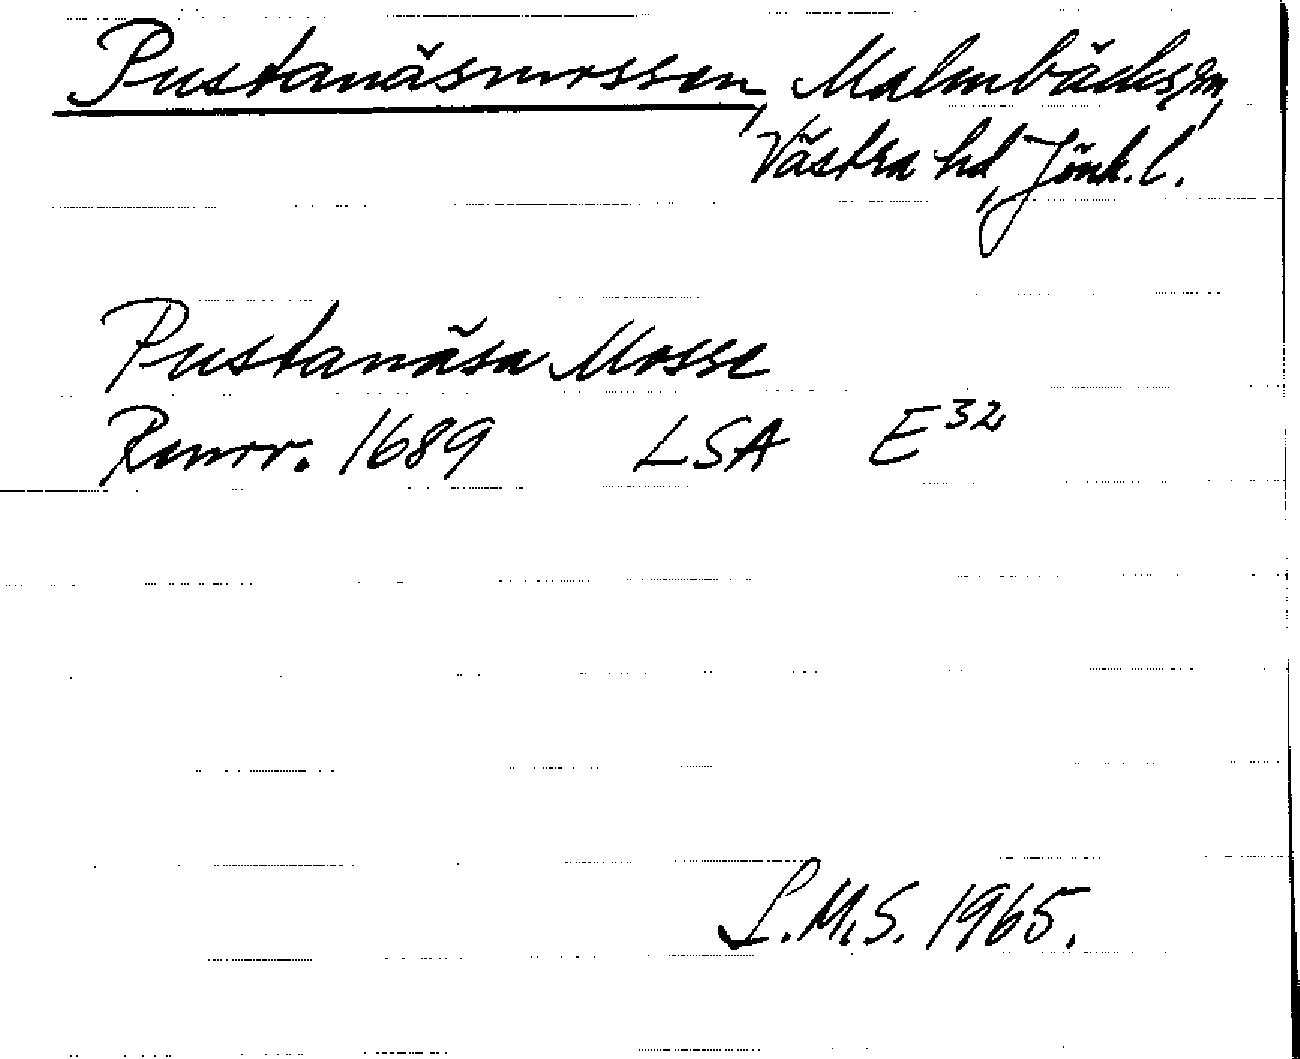 Pustanäsmossen, Malmbäcks sn,
Västra hd, Jönk. l.
Pustanäsa Mosse
Renov. 1689 LSA E32
L.M.S. 1965.